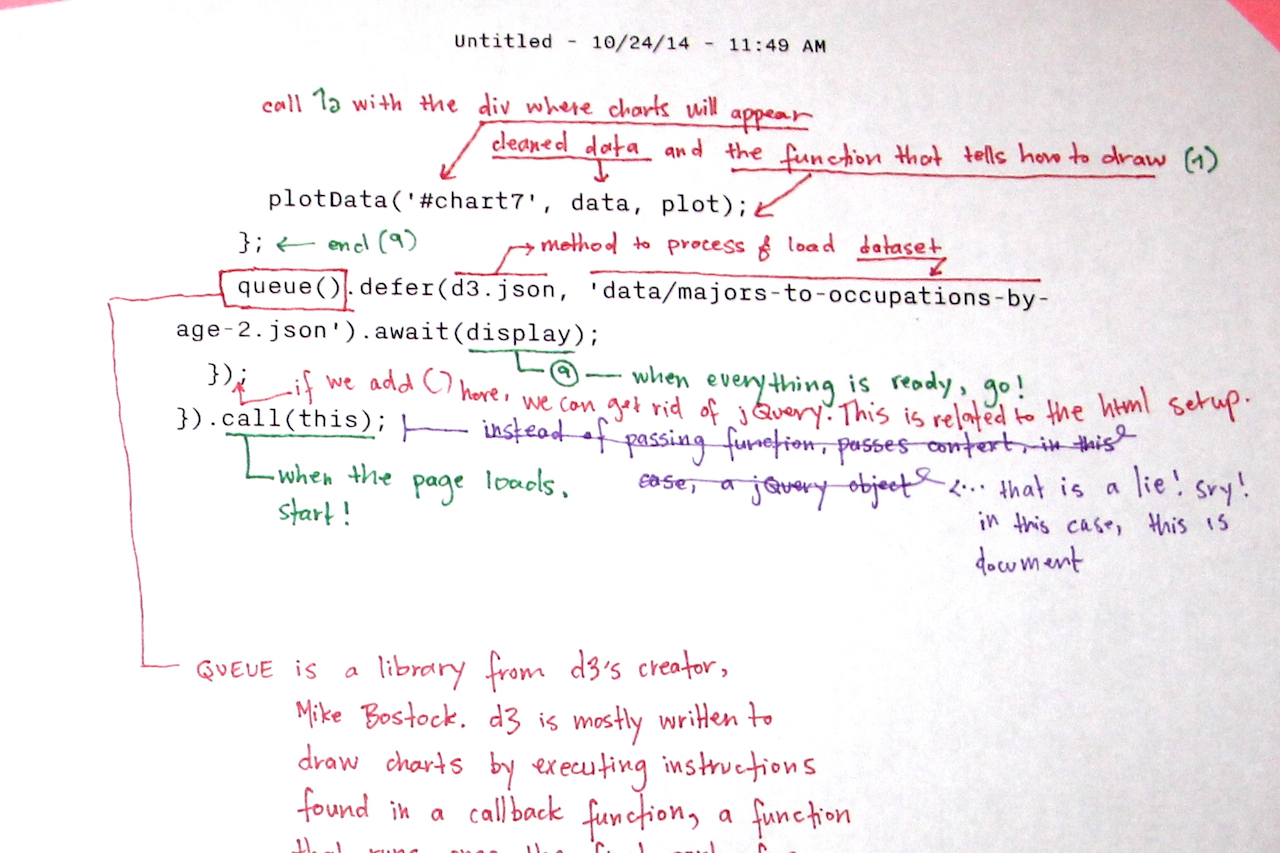 Untitled - 10/24/14 - 11:49 AM
call 1a with the div where charts will appear
cleaned data and the function that tells how to draw (1)
plotData('#chart7', data, plot);
}; ← end (9)
→ method to process & load dataset
queue().defer(d3.json, 'data/majors-to-occupations-by-
age-2.json').await(display);
9 — when everything is ready, go!
});
if we add () here, we can get rid of jQuery. This is related to the html setup.
}).call(this);
instead of passing function, passes context, in this
case, a jQuery object <... that is a lie! sry!
when the page loads,
start!
in this case, this is
document
QUEUE is a library from d3's creator,
Mike Bostock. d3 is mostly written to
draw charts by executing instructions
found in a callback function, a function